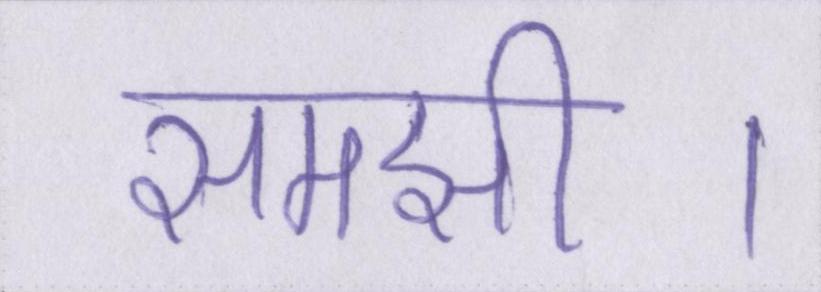 समझी ।